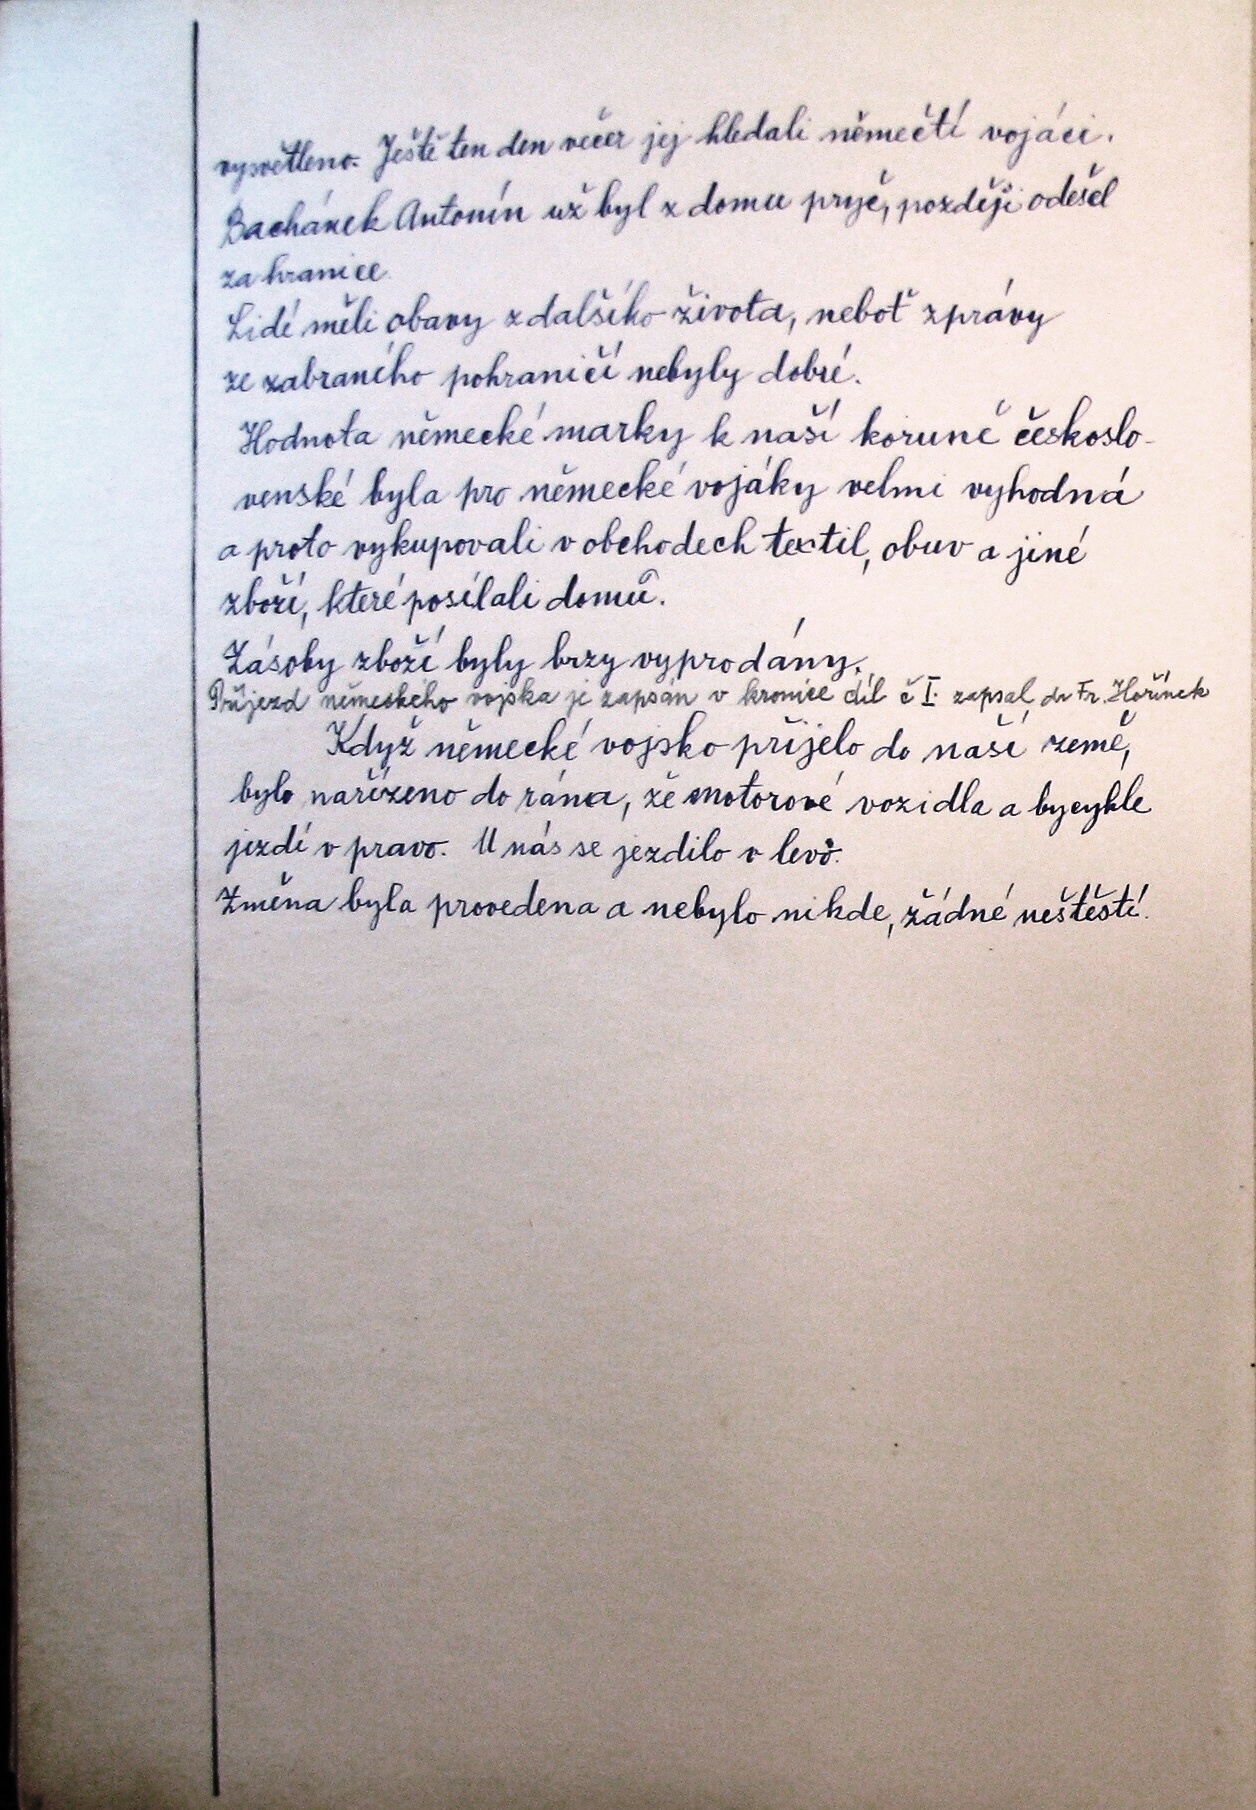 vysvětleno. Ještě ten den večer jej hledali němečtí vojáci.
Bachánek Antonín už byl z domu pryč, později odešel
za hranice
Lidé měli obavy z dalšího života, neboť zprávy
ze zabraného pohraničí nebyly dobré.
Hodnota německé marky k naší koruně českoslo-
venské byla pro německé vojáky velmi vyhodná
a proto vykupovali v obchodech textil, obuv a jiné
zboží, které posílali domů.
Zásoby zboží byly brzy vyprodány.
Průjezd německého vojska je zapsán v kronice díl č I. zapsal dr Fr. Hořínek
Když německé vojsko přijelo do naší země,
bylo nařízeno do rána, že motorové vozidla a bycykle
jezdí v pravo. U nás se jezdilo v levo.
Změna byla provedena a nebylo nikde, žádné neštěstí.